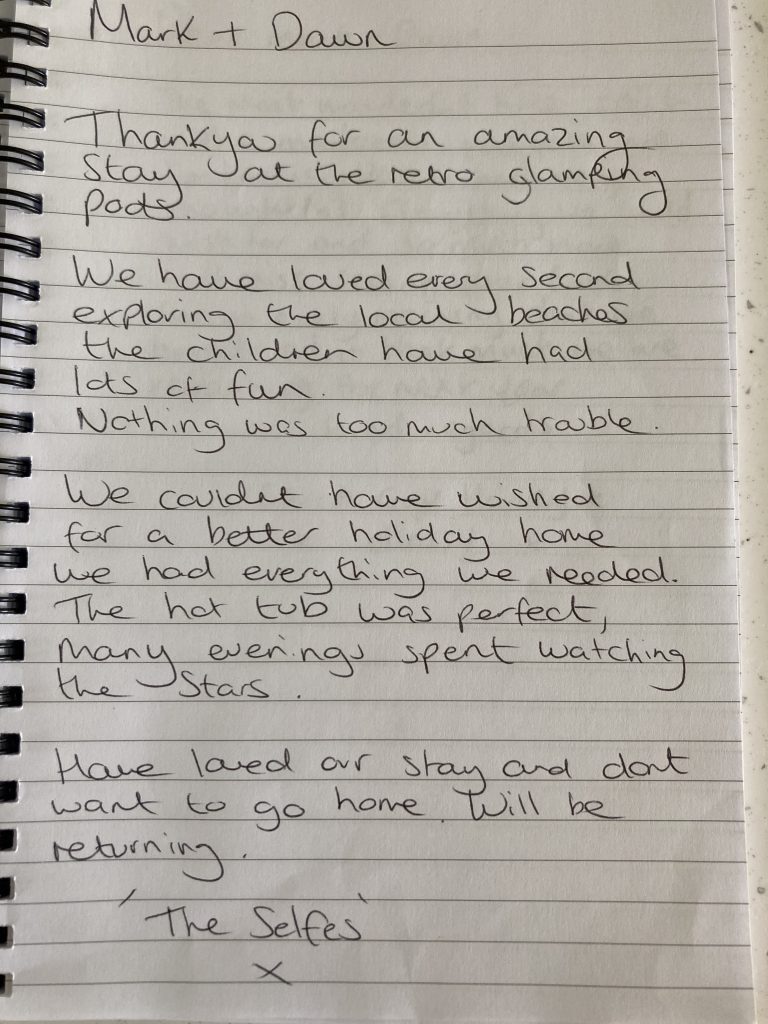 Mark + Dawn
Thankyou for an amazing
Stay at the retro glamping
Pods.
We have loved every second
exploring the local beaches
the children have had
lots of fun.
Nothing was too much trouble.
We couldnt have wished
for a better holiday home
we had everything we needed.
The hot tub was perfect,
many evenings spent watching
the Stars.
Have loved our stay and dont
want to go home. Will be
returning.
'The Selfes'
X